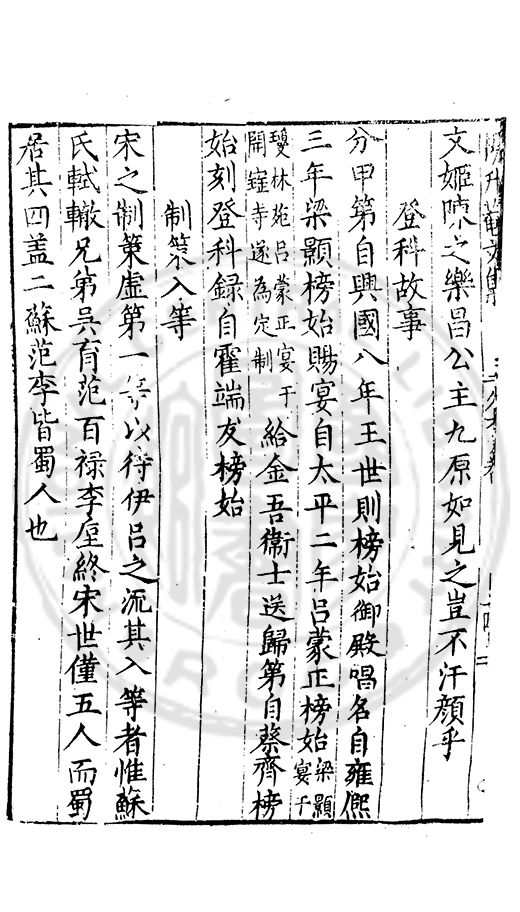 文姬陳之樂昌公主九原如見之豈不汗顔乎
登科故事
分甲第自興國八年王世則榜始御殿唱名自雍熈
三年梁顥榜始賜宴自太平二年吕蒙正榜始梁顥宴于
瓊林苑吕蒙正宴于開寳寺遂為定制給金吾衞士送歸第自蔡齊榜
始刻登科録自霍端友榜始
制策入等
宋之制策虛第一等以待伊吕之流其入等者惟蘇
氏軾轍兄弟吳育范百禄李垕終宋世僅五人而蜀
居其四盖二蘇范李皆蜀人也